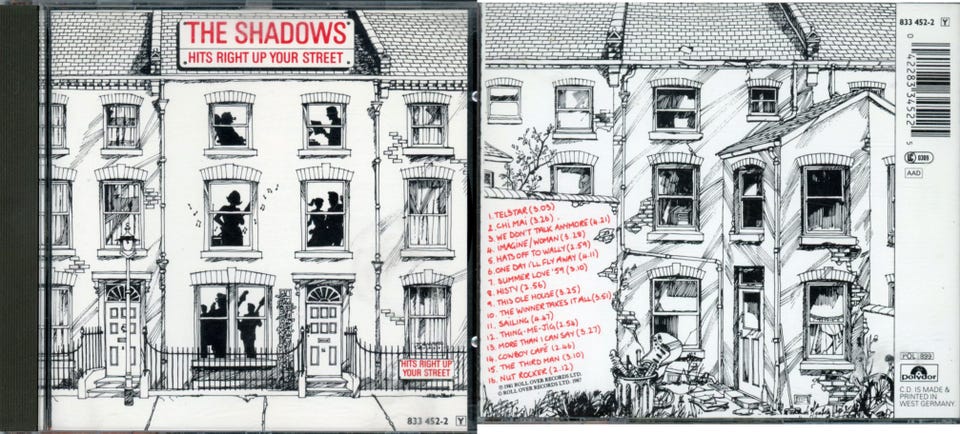 THE SHADOWS
HITS RIGHT UP YOUR STREET
HITS RIGHT UP
YOUR STREET
833 452-2 Y
833 452-2 Y
0 42283 34522 5
G 0389
AAD
1. TELSTAR (3.03)
2. CHI MAI (3.26).
3. WE DON'T TALK ANYMORE (4.21)
4. IMAGINE/WOMAN (3.28)
5. HATS OFF TO WALLY (2.59)
6. ONE DAY I'LL FLY AWAY (4.11)
7. SUMMER LOVE '59 (3.10)
8. MISTY (2.56)
9. THIS OLE HOUSE (3.25)
10. THE WINNER TAKES IT ALL (3.51)
11. SAILING (4.47)
12. THING-ME-JIG (2.52)
13. MORE THAN I CAN SAY (3.27)
14. COWBOY CAFÉ (2.46)
15. THE THIRD MAN (3.10)
16. NUT ROCKER (2.12)
℗ 1981 ROLL OVER RECORDS LTD.
© ROLL OVER RECORDS LTD. 1987
POL 899
polydor
C.D. IS MADE &
PRINTED IN
WEST GERMANY.